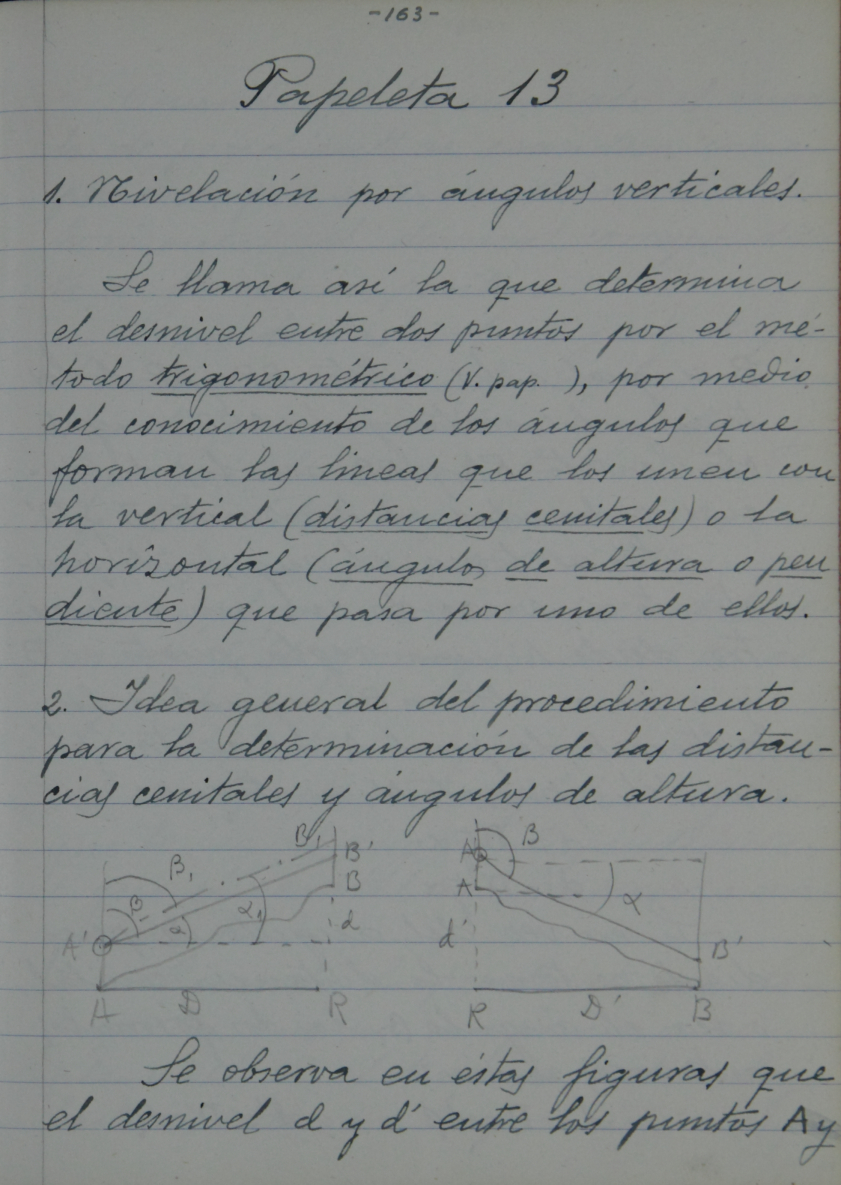 -163-
Papeleta 13
1. Nivelación por ángulos verticales.
Se llama así la que determina
el desnivel entre dos puntos por el mé-
todo trigonométrico (V. pap. ), por medio
del conocimiento de los ángulos que
forman las lineas que los unen con
la vertical (distancias cenitales) o la
horizontal (ángulos de altura o pen
diente) que pasa por uno de ellos.
2. Idea general del procedimiento
para la determinación de las distan-
cias cenitales y ángulos de altura.
B₁ B' β₁ B β α α₁ d A' A D R
β A A α d' B' R D' B
Se observa en éstas figuras que
el desnivel d y d' entre los puntos A y